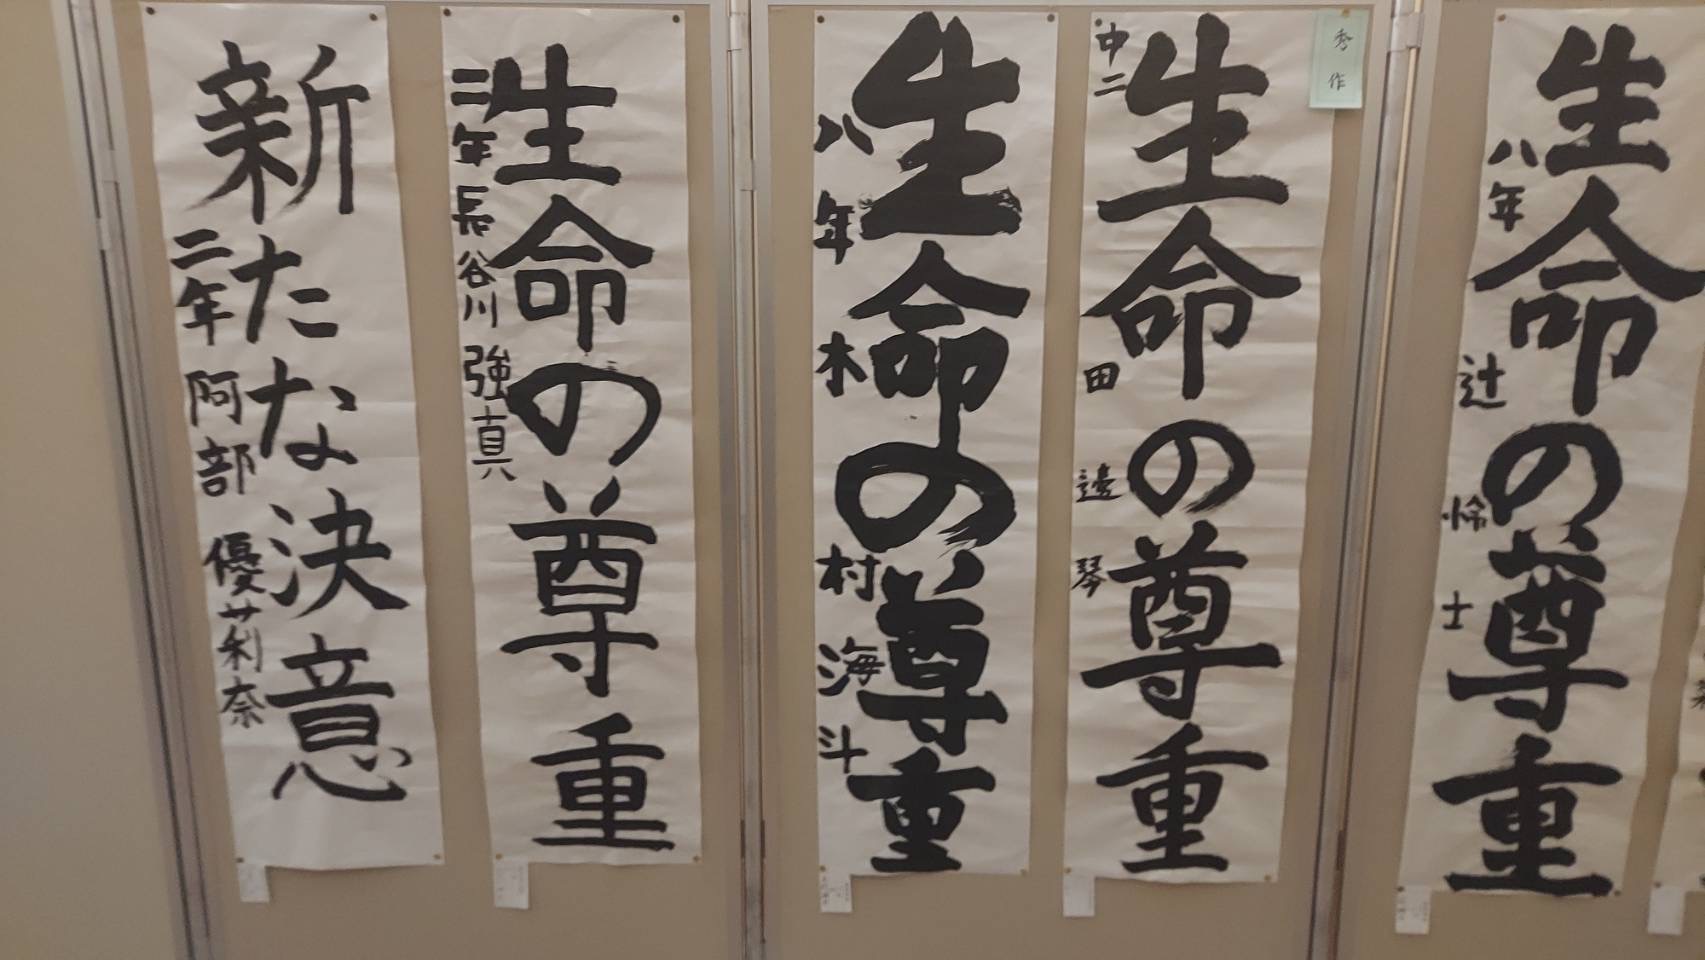 新たな決意
二年 阿部 優茉莉奈
生命の尊重
二年 長谷川 強真
生命の尊重
八年 木村海斗
秀作
生命の尊重
中二 田邊琴
生命の尊重
八年 辻怜士